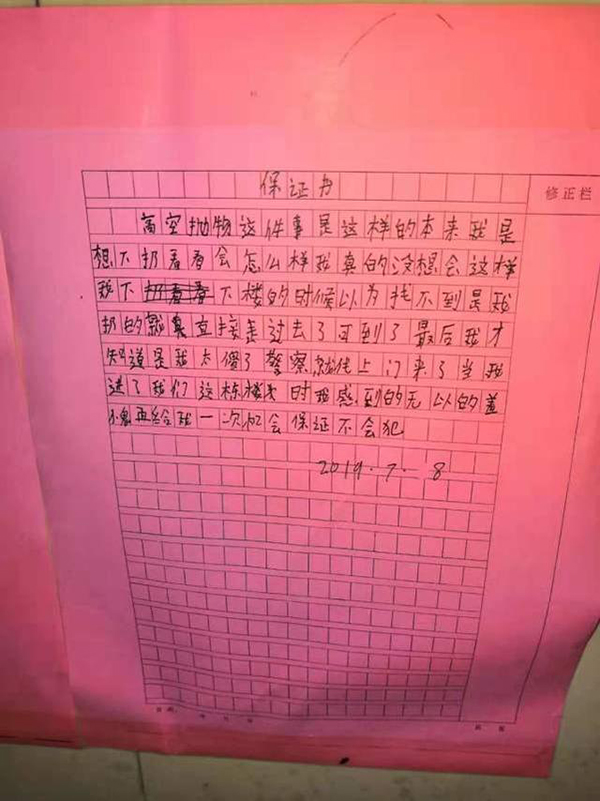 保证书
修正栏
高空抛物这件事是这样的本来我是
想下扔看看会怎么样我真的没想会这样
我下楼的时候以为找不到是我
扔的就直接走过去了可到了最后我才
知道是我太傻了警察就找上门来了当我
进了我们这栋楼时我感到的无以的羞
愧再给我一次机会保证不会犯
2019.7.8